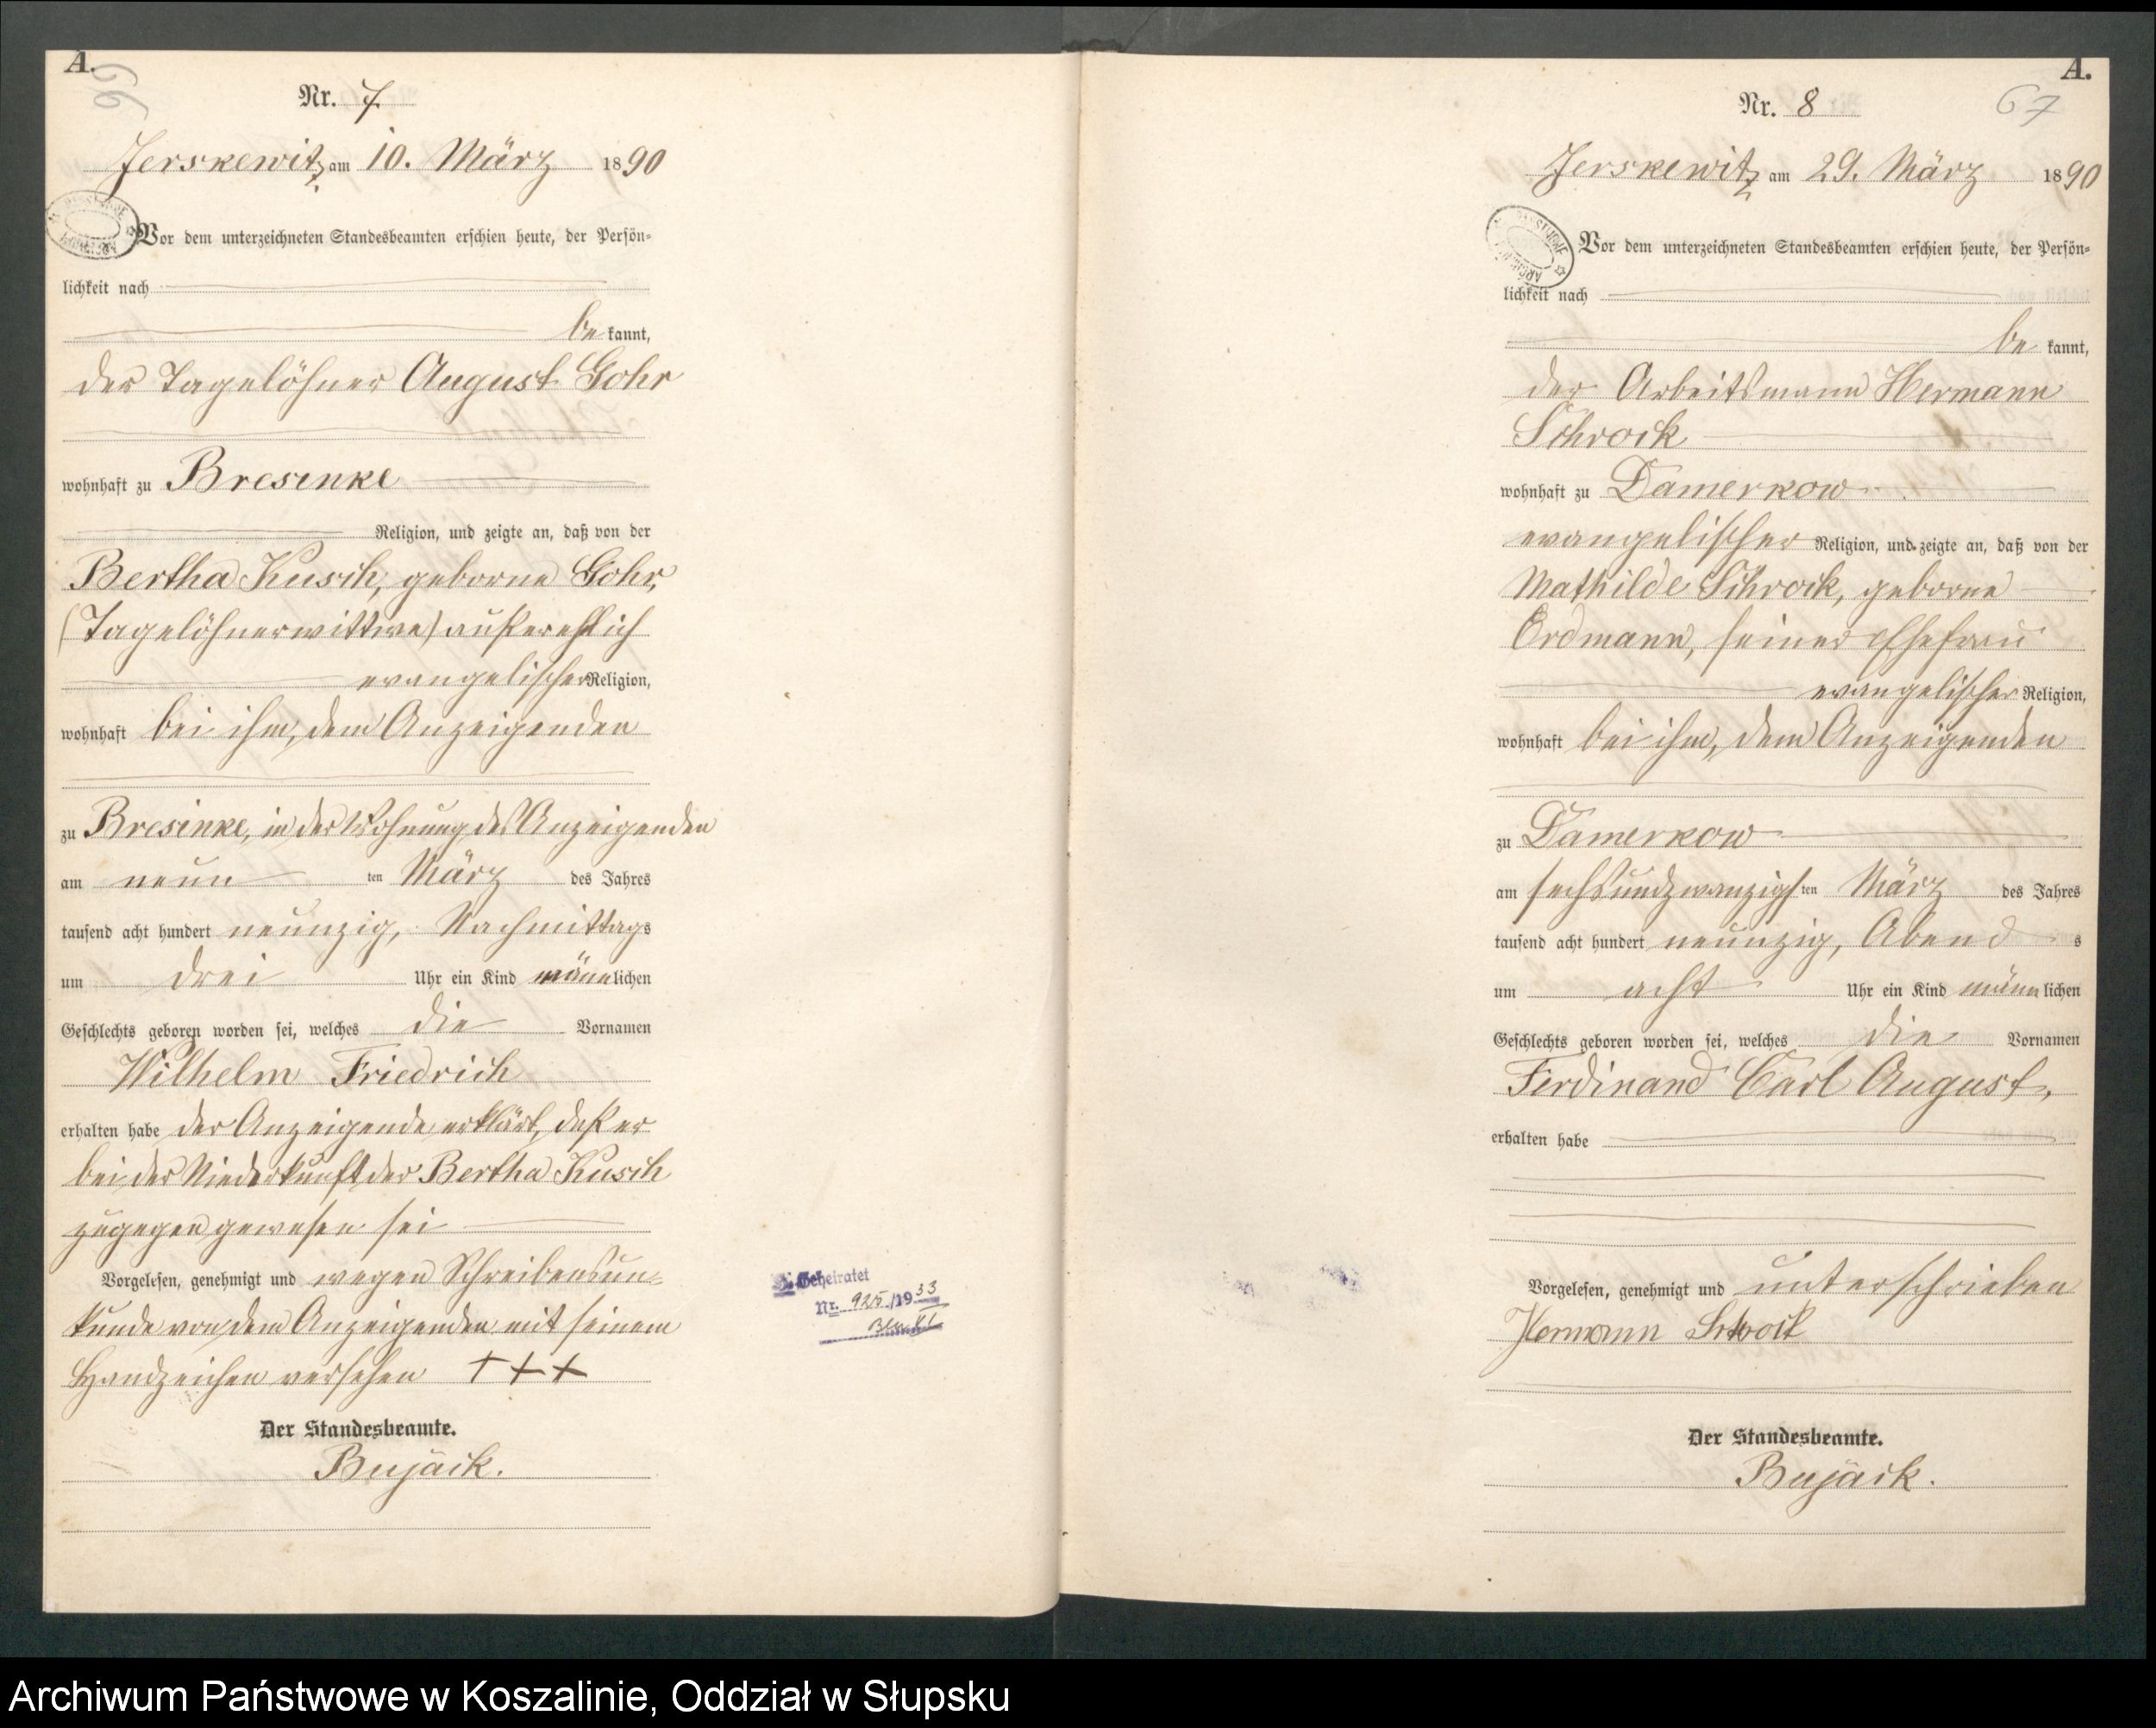 A.
66
Nr. 7.
Jerskewitz am 10. März 1890
Vor dem unterzeichneten Standesbeamten erschien heute, der Persön-
lichkeit nach
be kannt,
der Tagelöhner August Gohr
wohnhaft zu Bresinke
Religion, und zeigte an, daß von der
Bertha Kusch, geborne Gohr,
(Tagelöhnerwittwe) außerehlich
evangelischer Religion,
wohnhaft bei ihm, dem Anzeigenden
zu Bresinke, in der Wohnung des Anzeigenden
am neun ten März des Jahres
tausend acht hundert neunzig, Nachmittags
um drei Uhr ein Kind männlichen
Geschlechts geboren worden sei, welches die Vornamen
Wilhelm Friedrich
erhalten habe der Anzeigende erklärt, daß er
bei der Niederkunft der Bertha Kusch
zugegen gewesen sei
Vorgelesen, genehmigt und wegen Schreibensun-
kunde von dem Anzeigenden mit seinem
Handzeichen versehen +++
Der Standesbeamte.
Bujack.
Geheiratet
Nr. 925/1933
A.
67
Nr. 8
Jerskewitz am 29. März 1890
Vor dem unterzeichneten Standesbeamten erschien heute, der Persön-
lichkeit nach
be kannt,
der Arbeitsmann Hermann
Schrock
wohnhaft zu Damerkow
evangelischer Religion, und zeigte an, daß von der
Mathilde Schrock, geborne
Ordmann, seiner Ehefrau
evangelischer Religion,
wohnhaft bei ihm, dem Anzeigenden
zu Damerkow
am sechsundzwanzigsten März des Jahres
tausend acht hundert neunzig, Abends
um acht Uhr ein Kind männlichen
Geschlechts geboren worden sei, welches die Vornamen
Ferdinand Carl August,
erhalten habe
Vorgelesen, genehmigt und unterschrieben
Hermann Schrock
Der Standesbeamte.
Bujack.
Archiwum Państwowe w Koszalinie, Oddział w Słupsku